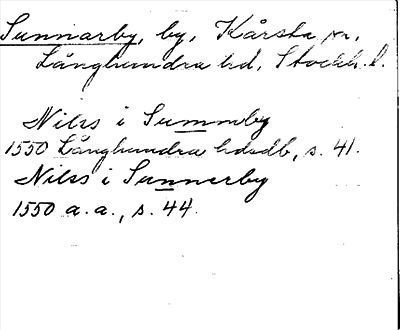 Sunnarby, by, Kårsta sn,
Långhundra hd, Stockh. l.
Nils i Sunnuby
1550 Långhundra hdsdb, s. 41.
Nils i Sunnerby
1550 a.a., s. 44.